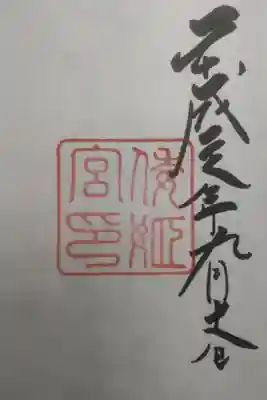 平成元年九月十六日
倭姫
宮印